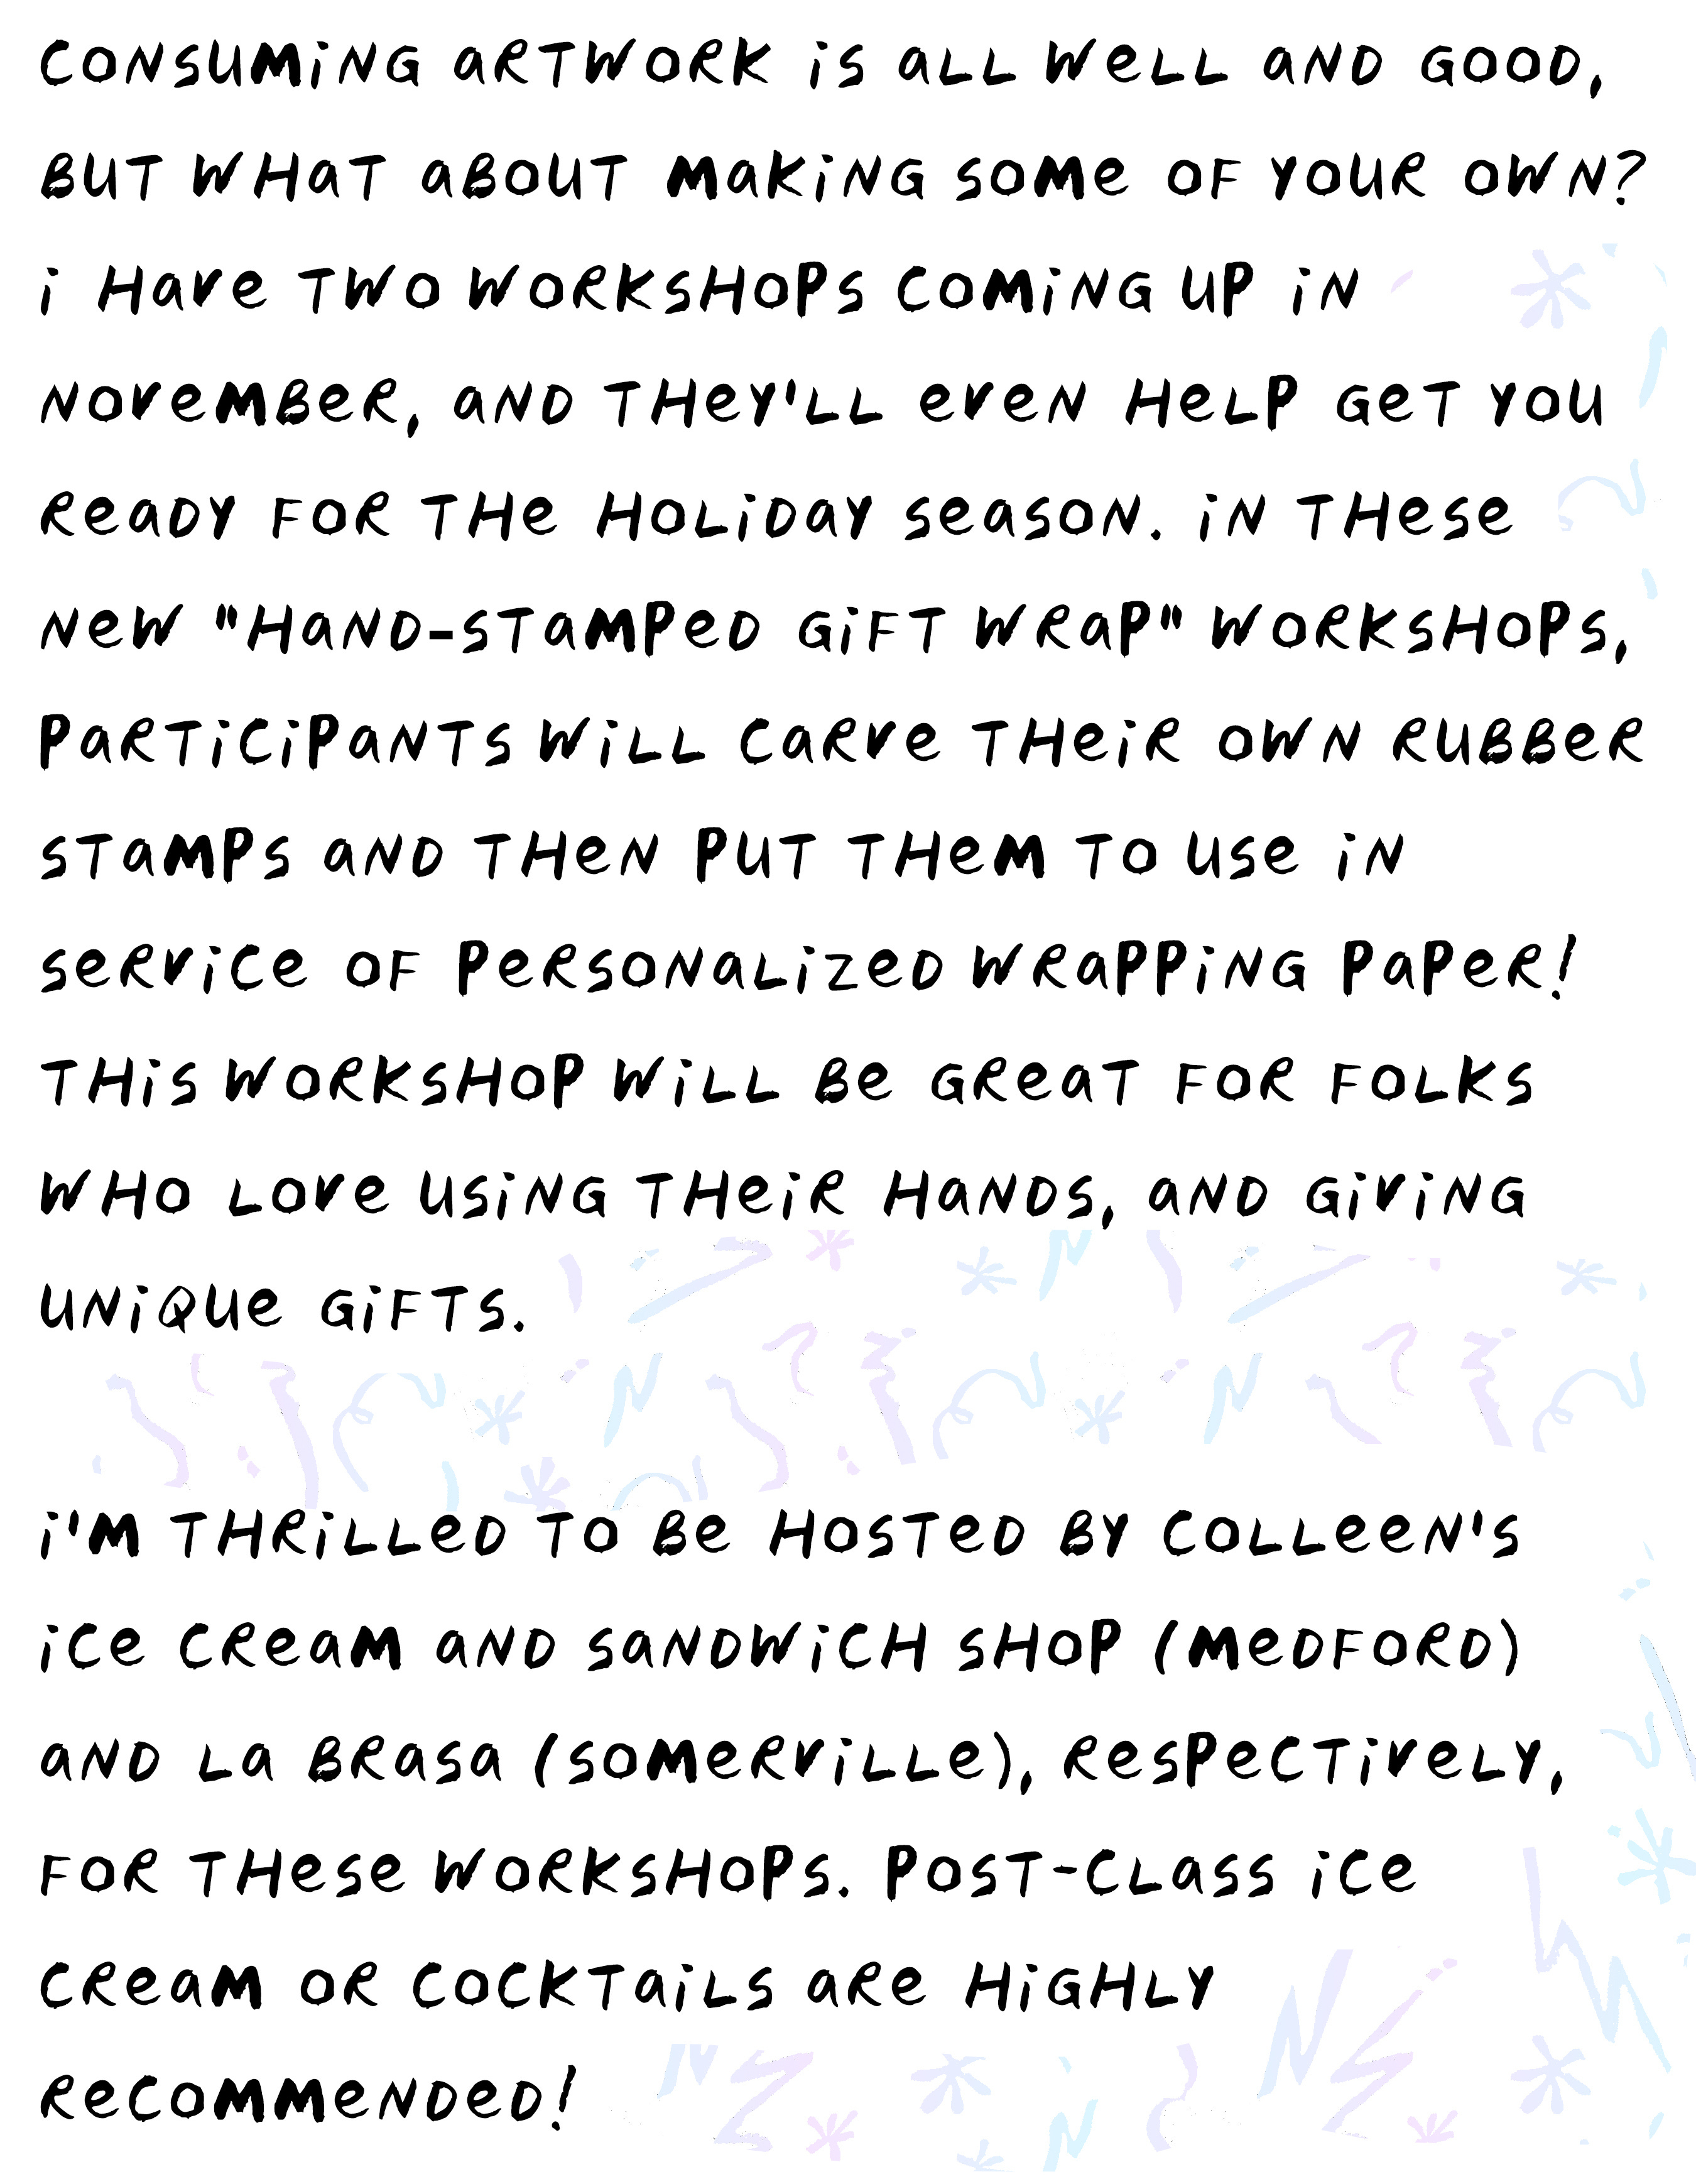 CONSUMING ARTWORK IS ALL WELL AND GOOD,
BUT WHAT ABOUT MAKING SOME OF YOUR OWN?
I HAVE TWO WORKSHOPS COMING UP IN
NOVEMBER, AND THEY'LL EVEN HELP GET YOU
READY FOR THE HOLIDAY SEASON. IN THESE
NEW "HAND-STAMPED GIFT WRAP" WORKSHOPS,
PARTICIPANTS WILL CARVE THEIR OWN RUBBER
STAMPS AND THEN PUT THEM TO USE IN
SERVICE OF PERSONALIZED WRAPPING PAPER!
THIS WORKSHOP WILL BE GREAT FOR FOLKS
WHO LOVE USING THEIR HANDS, AND GIVING
UNIQUE GIFTS.
I'M THRILLED TO BE HOSTED BY COLLEEN'S
ICE CREAM AND SANDWICH SHOP (MEDFORD)
AND LA BRASA (SOMERVILLE), RESPECTIVELY,
FOR THESE WORKSHOPS. POST-CLASS ICE
CREAM OR COCKTAILS ARE HIGHLY
RECOMMENDED!